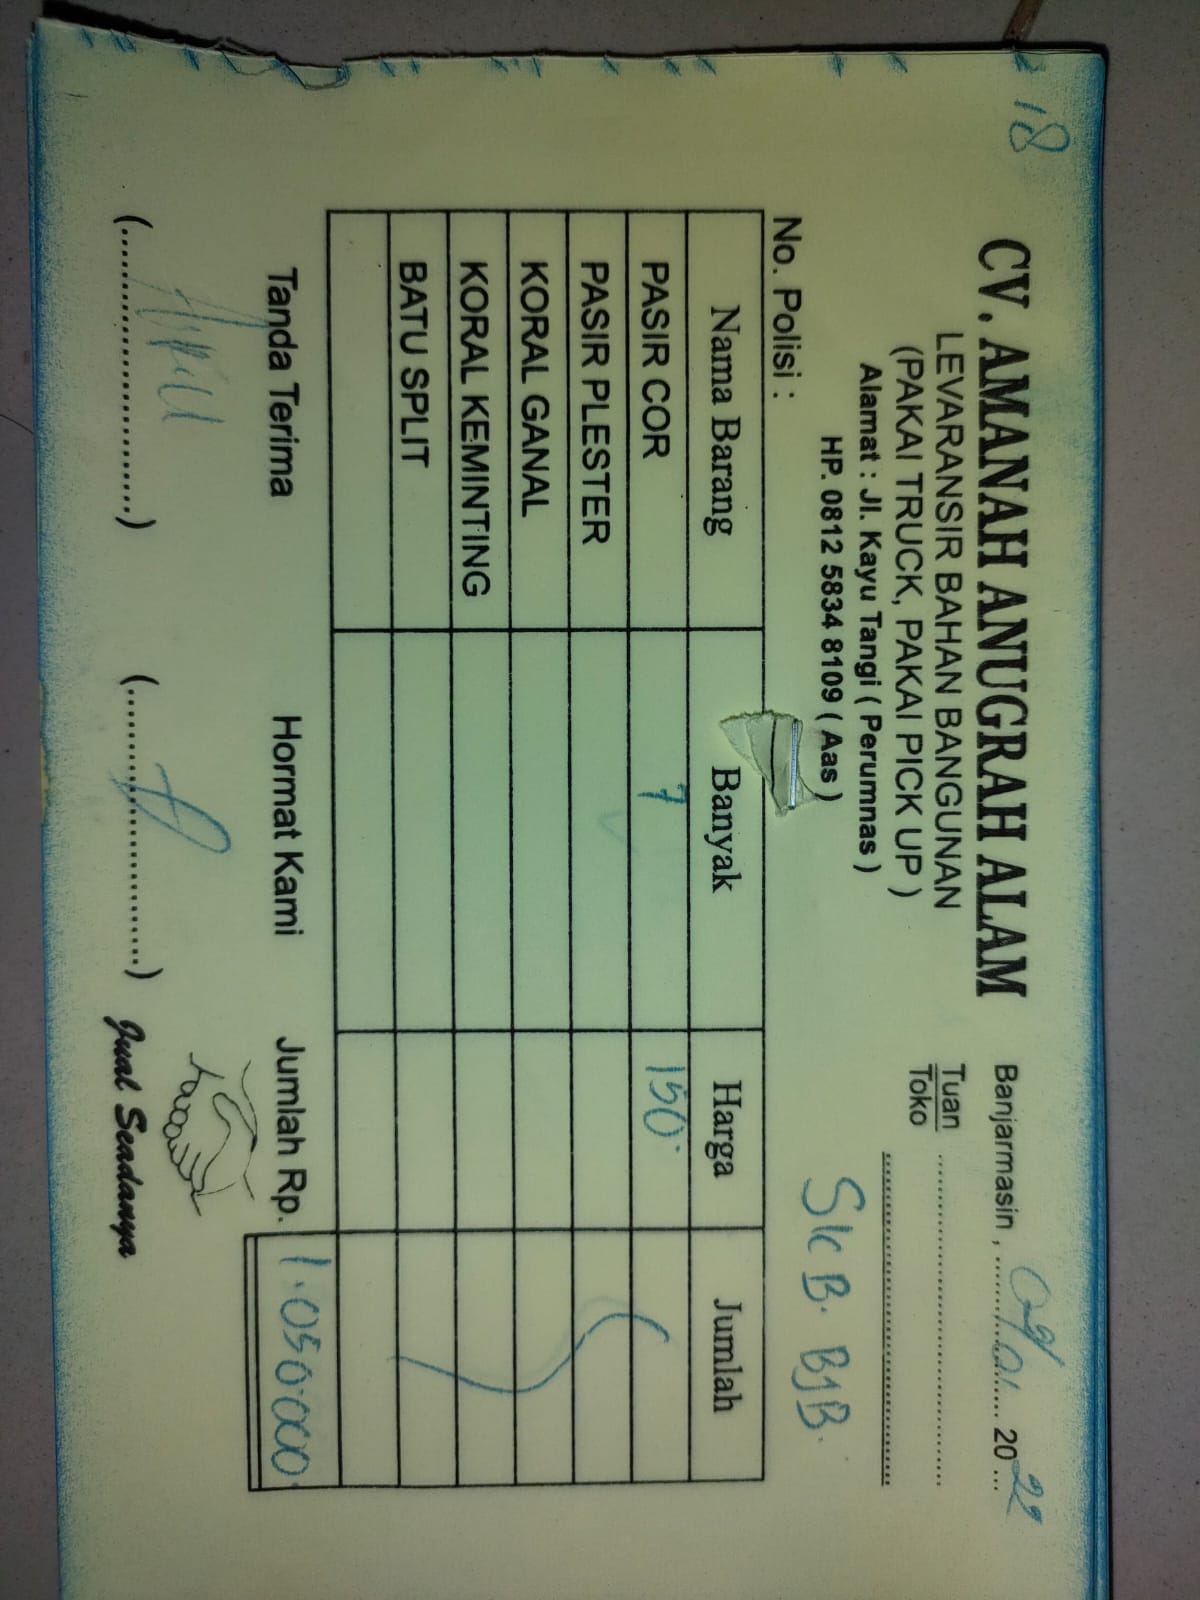 18
CV. AMANAH ANUGRAH ALAM
LEVARANSIR BAHAN BANGUNAN
(PAKAI TRUCK, PAKAI PICK UP )
Alamat : Jl. Kayu Tangi ( Perumnas )
HP. 0812 5834 8109 ( Aas )
Banjarmasin, 09/01 2022
Tuan
Toko
SICB. BJB.
No. Polisi :
Nama Barang Banyak Harga Jumlah
PASIR COR 7 150.
PASIR PLESTER
KORAL GANAL
KORAL KEMINTING
BATU SPLIT
Tanda Terima Hormat Kami Jumlah Rp. 1.050.000.
(..............................) (..............................) Jual Seadanya